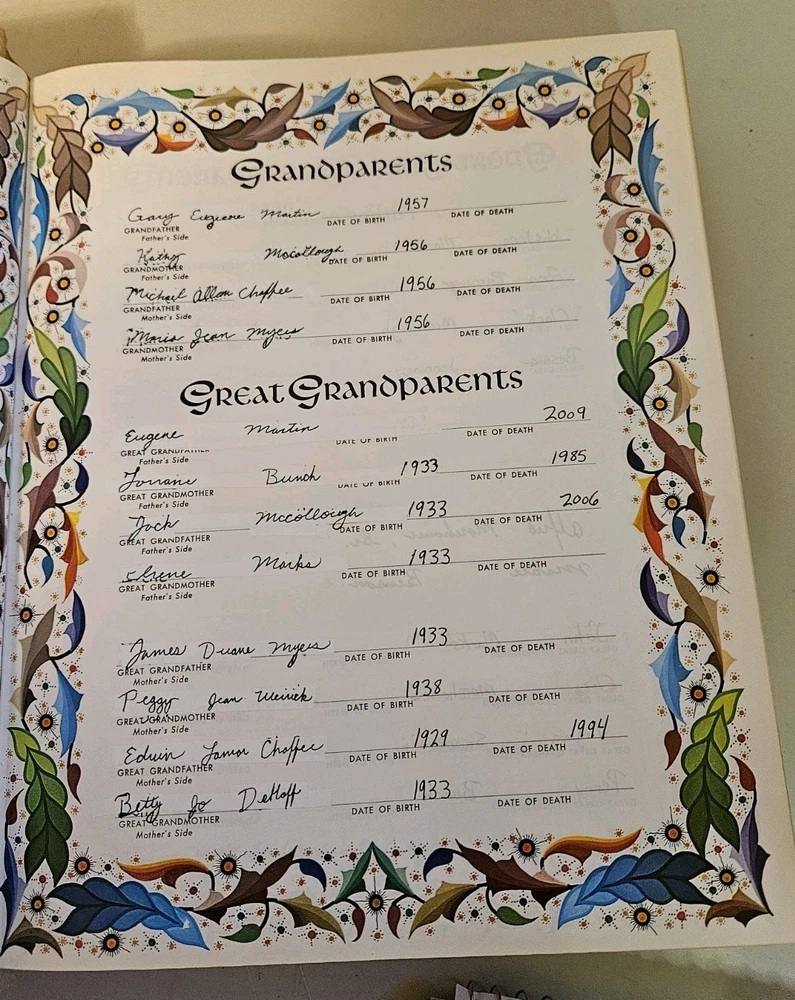 Grandparents
Gary Eugene Martin 1957
GRANDFATHER DATE OF BIRTH DATE OF DEATH
Father's Side
Kathy Mccollough 1956
GRANDMOTHER DATE OF BIRTH DATE OF DEATH
Father's Side
Michael Allan Chaffee 1956
GRANDFATHER DATE OF BIRTH DATE OF DEATH
Mother's Side
Maria Jean Myers 1956
GRANDMOTHER DATE OF BIRTH DATE OF DEATH
Mother's Side
Great Grandparents
Eugene Martin 2009
GREAT GRANDFATHER DATE OF BIRTH DATE OF DEATH
Father's Side
Bunch 1933 1985
GREAT GRANDMOTHER DATE OF BIRTH DATE OF DEATH
Father's Side
Jack Mccollough 1933 2006
GREAT GRANDFATHER DATE OF BIRTH DATE OF DEATH
Father's Side
Irene Marks 1933
GREAT GRANDMOTHER DATE OF BIRTH DATE OF DEATH
Father's Side
James Duane Myers 1933
GREAT GRANDFATHER DATE OF BIRTH DATE OF DEATH
Mother's Side
Peggy Jean 1938
GREAT GRANDMOTHER DATE OF BIRTH DATE OF DEATH
Mother's Side
Edwin Lamar Chaffee 1929 1994
GREAT GRANDFATHER DATE OF BIRTH DATE OF DEATH
Mother's Side
Betty Jo DeHoff 1933
GREAT GRANDMOTHER DATE OF BIRTH DATE OF DEATH
Mother's Side